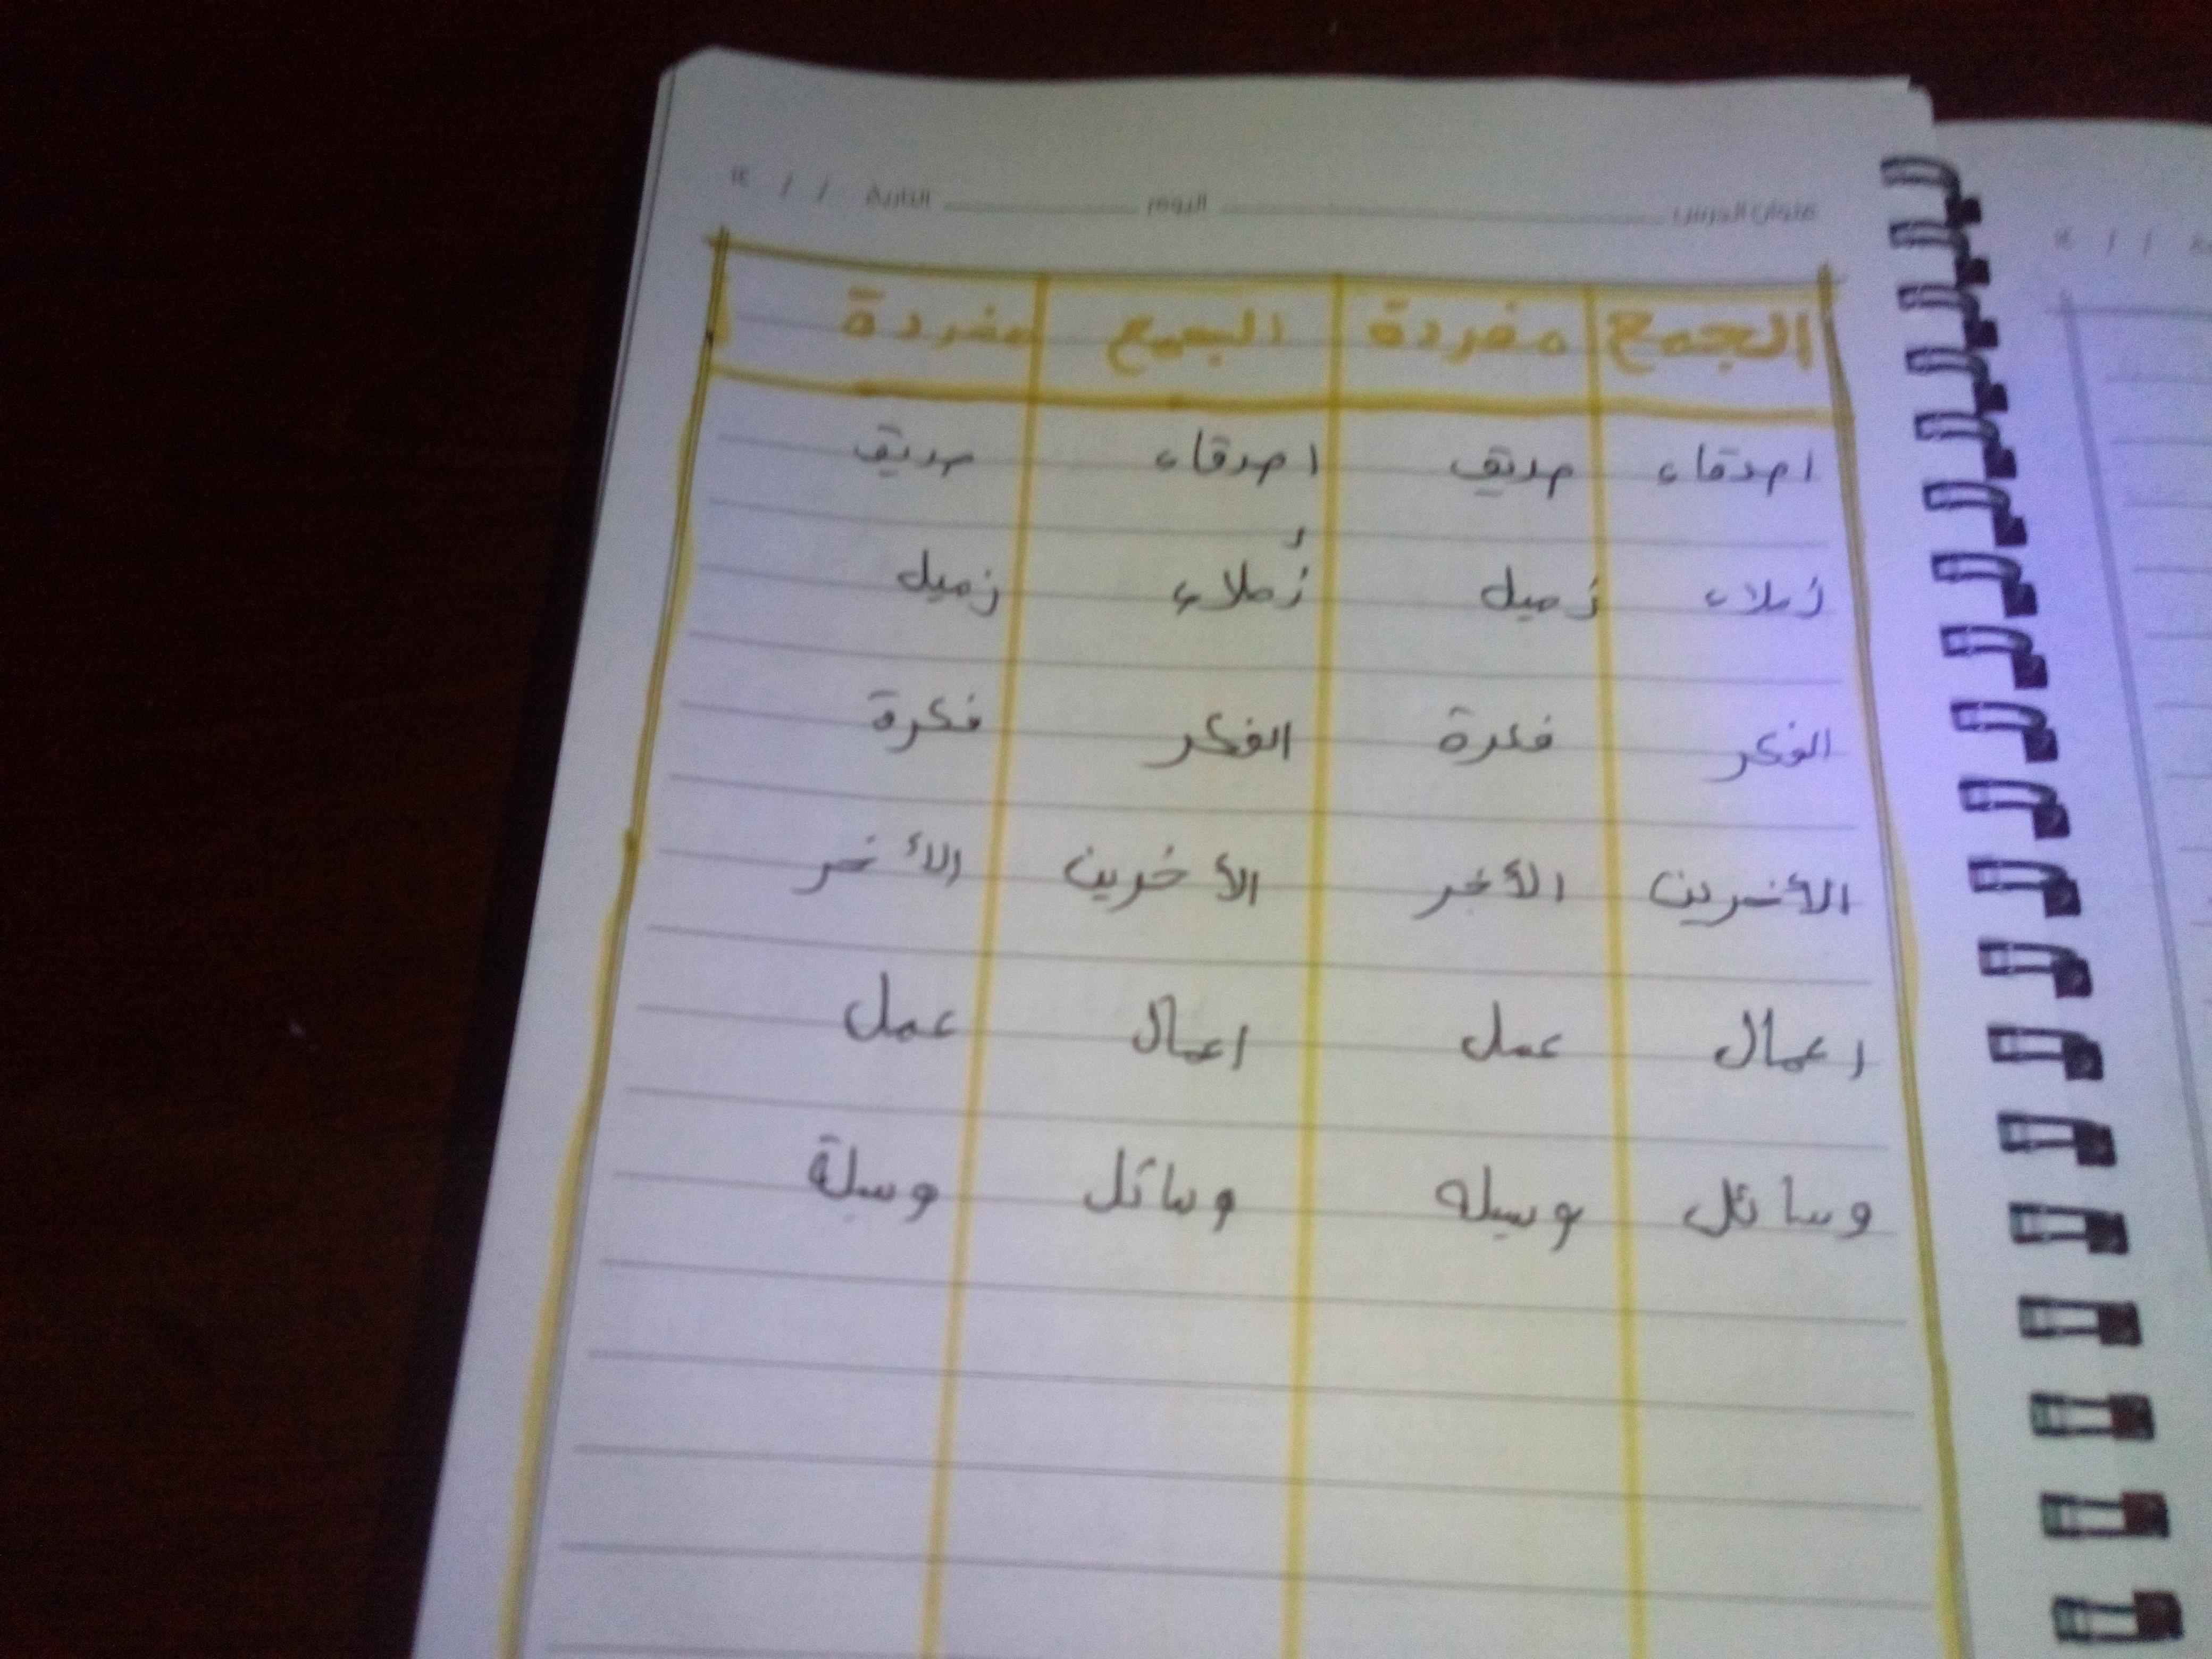 عنوان الدرس اليوم التاريخ / / ١٤
الجمع مفردة الجمع مفردة
اصدقاء صديق اصدقاء صديق
زملاء زميل زُملاء زميل
الفكر فكرة الفكر فكرة
الأخرين الأخر الأخرين الأخر
اعمال عمل اعمال عمل
وسائل وسيله وسائل وسلة